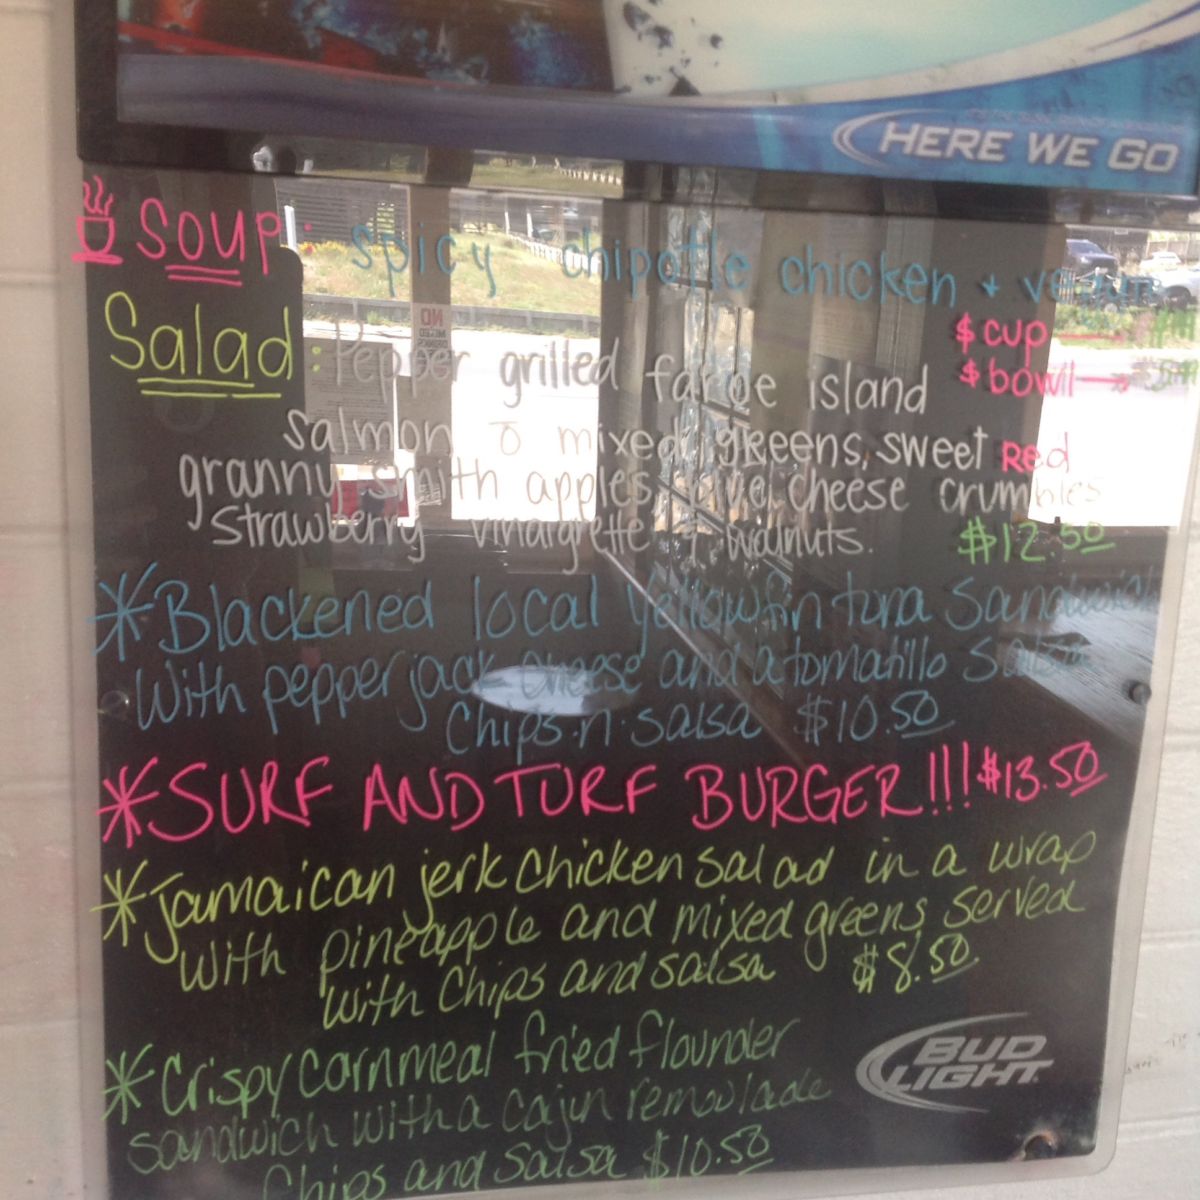 HERE WE GO
SOUP: spicy chipotle chicken +
$ cup →
$ bowl →
Salad: Pepper grilled faroe island
salmon c̄ mixed greens, sweet Red
granny smith apples, cheese crumbles
strawberry vinaigrette + walnuts. $12.50
*Blackened local yellowfin tuna Sandwich
With pepper jack cheese and a tomatillo Salsa
Chips.n.salsa $10.50
*SURF AND TURF BURGER!!! $13.50
*Jamaican jerk chicken salad in a wrap
With pineapple and mixed greens served
with Chips and salsa $8.50
*Crispy cornmeal fried flounder
sandwich with a cajun remoulade
Chips and Salsa $10.50
BUD
LIGHT
NO